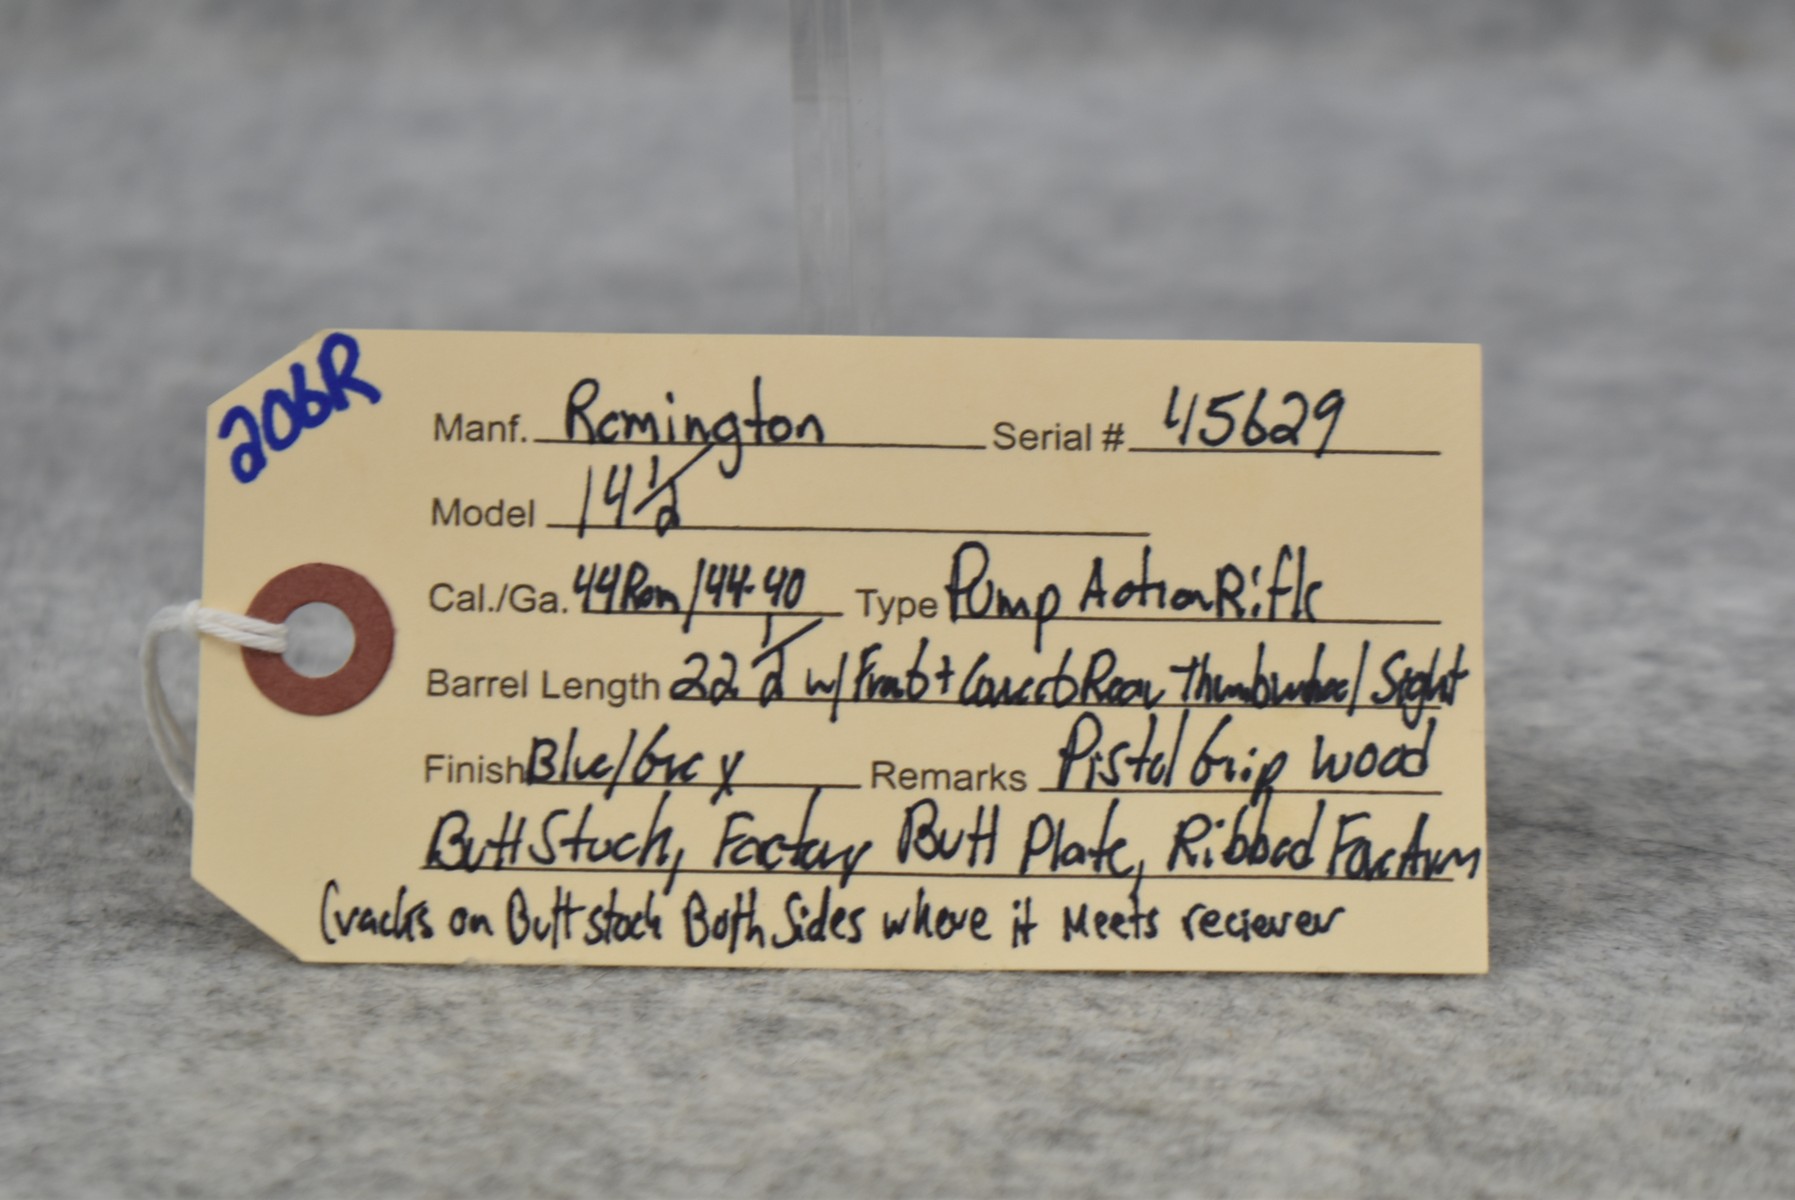 206R
Manf. Remington Serial # 45629
Model 14 1/2
Cal./Ga. 44 Rem/44-40 Type Pump Action Rifle
Barrel Length 22 1/2 w/ Front + Correct Rear Thumbwheel Sight
Finish Blue/Grey Remarks Pistol Grip Wood
Butt Stock, Factory Butt Plate, Ribbed Forearm
Cracks on Buttstock Both Sides where it Meets reciever